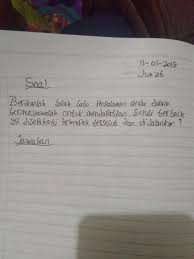 11-01-2018
Jum'at
Soal
Berikanlah salah satu pengalaman anda dalam
bermusyawarah untuk mendapatkan solusi terbaik
yg disepakati kelompok tersebut dan dijalankan ?
Jawaban